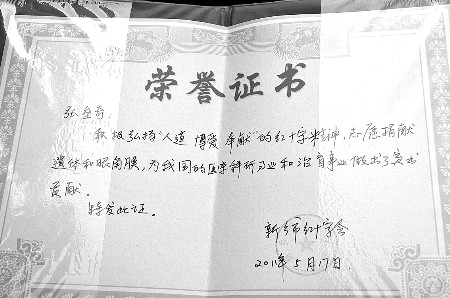 荣誉证书
张全奇:
积极弘扬"人道 博爱 奉献"的红十字精神,志愿捐献
遗体和眼角膜,为我国的医学科研事业和治盲事业做出了突出
贡献。
特发此证。
新乡市红十字会
2011年5月17日